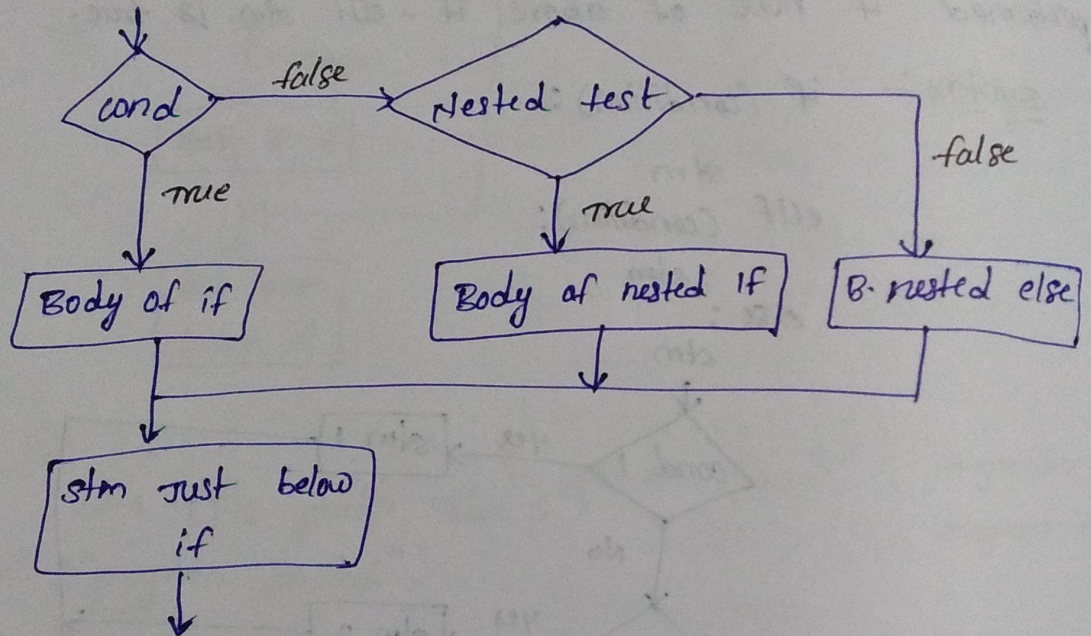 cond
false
Nested test
false
true
true
Body of if
Body of nested if
B. nested else
stm Just below
if